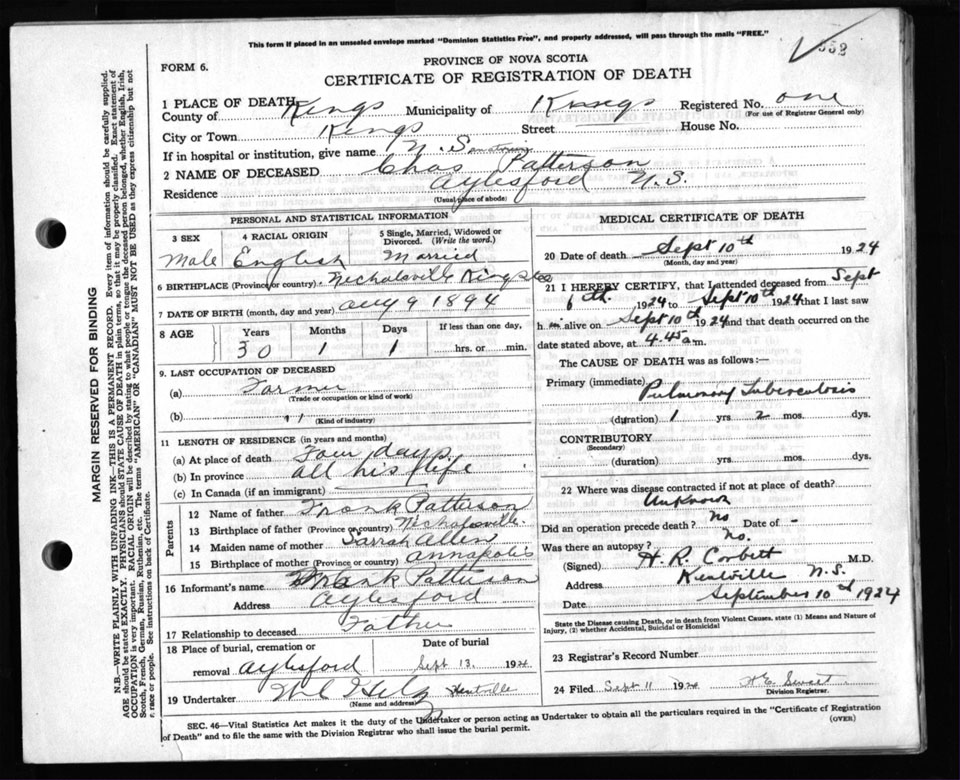 This form if placed in an unsealed envelope marked "Dominion Statistics Free", and properly addressed, will pass through the mails "FREE."
FORM 6.
PROVINCE OF NOVA SCOTIA
CERTIFICATE OF REGISTRATION OF DEATH
1 PLACE OF DEATH
County of Kings Municipality of Kings Registered No. one
(For use of Registrar General only)
City or Town Kings Street House No.
If in hospital or institution, give name N. S.
2 NAME OF DECEASED Chas Patterson
Residence Aylesford N.S.
(Usual place of abode)
PERSONAL AND STATISTICAL INFORMATION
3 SEX 4 RACIAL ORIGIN 5 Single, Married, Widowed or Divorced. (Write the word.)
Male English Married
6 BIRTHPLACE (Province or country) Nicholsville Kings
7 DATE OF BIRTH (month, day and year) aug 9 1894
8 AGE Years Months Days If less than one day,
30 1 1 hrs. or min.
9. LAST OCCUPATION OF DECEASED
(a) Farmer
(Trade or occupation or kind of work)
(b) "
(Kind of industry)
11 LENGTH OF RESIDENCE (in years and months)
(a) At place of death Four days
(b) In province all his life
(c) In Canada (if an immigrant)
Parents
12 Name of father Frank Patterson
13 Birthplace of father (Province or country) Nicholsville
14 Maiden name of mother Sarrah Allen
15 Birthplace of mother (Province or country) annapolis
16 Informant's name Frank Patterson
Address Aylesford
17 Relationship to deceased Father
18 Place of burial, cremation or removal Aylesford
Date of burial
Sept 13, 1924
19 Undertaker Kentville
(Name and address)
MEDICAL CERTIFICATE OF DEATH
20 Date of death Sept 10th 1924
(Month, day and year)
21 I HEREBY CERTIFY, that I attended deceased from Sept
6th. 1924 to Sept 10th 1924 that I last saw
h im alive on Sept 10th 1924 and that death occurred on the
date stated above, at 4.45 a m.
The CAUSE OF DEATH was as follows:—
Primary (immediate) Pulmonary Tuberculosis
(duration) 1 yrs 2 mos. dys.
CONTRIBUTORY
(Secondary)
(duration) yrs. mos. dys.
22 Where was disease contracted if not at place of death?
Unknown
Did an operation precede death? no Date of -
Was there an autopsy? no.
(Signed) H. R. Corbett M.D.
Address Kentville N.S.
Date September 10th 1924
State the Disease causing Death, or in death from Violent Causes, state (1) Means and Nature of Injury, (2) whether Accidental, Suicidal or Homicidal
23 Registrar's Record Number
24 Filed Sept 11 1924
Division Registrar.
SEC. 46—Vital Statistics Act makes it the duty of the Undertaker or person acting as Undertaker to obtain all the particulars required in the "Certificate of Registration
of Death" and to file the same with the Division Registrar who shall issue the burial permit.
(OVER)
MARGIN RESERVED FOR BINDING
N.B.—WRITE PLAINLY WITH UNFADING INK—THIS IS A PERMANENT RECORD. Every item of information should be carefully supplied.
AGE should be stated EXACTLY. PHYSICIANS should STATE CAUSE OF DEATH in plain terms, so that it may be properly classified. Exact statement of
OCCUPATION is very important. RACIAL ORIGIN will be described by stating to what people or tongue the deceased person belonged, whether English, Irish,
Scotch, French, German, Russian, Ruthenian, etc. The terms "AMERICAN" OR "CANADIAN" MUST NOT BE USED as they express citizenship but not
race or people. See instructions on back of Certificate.